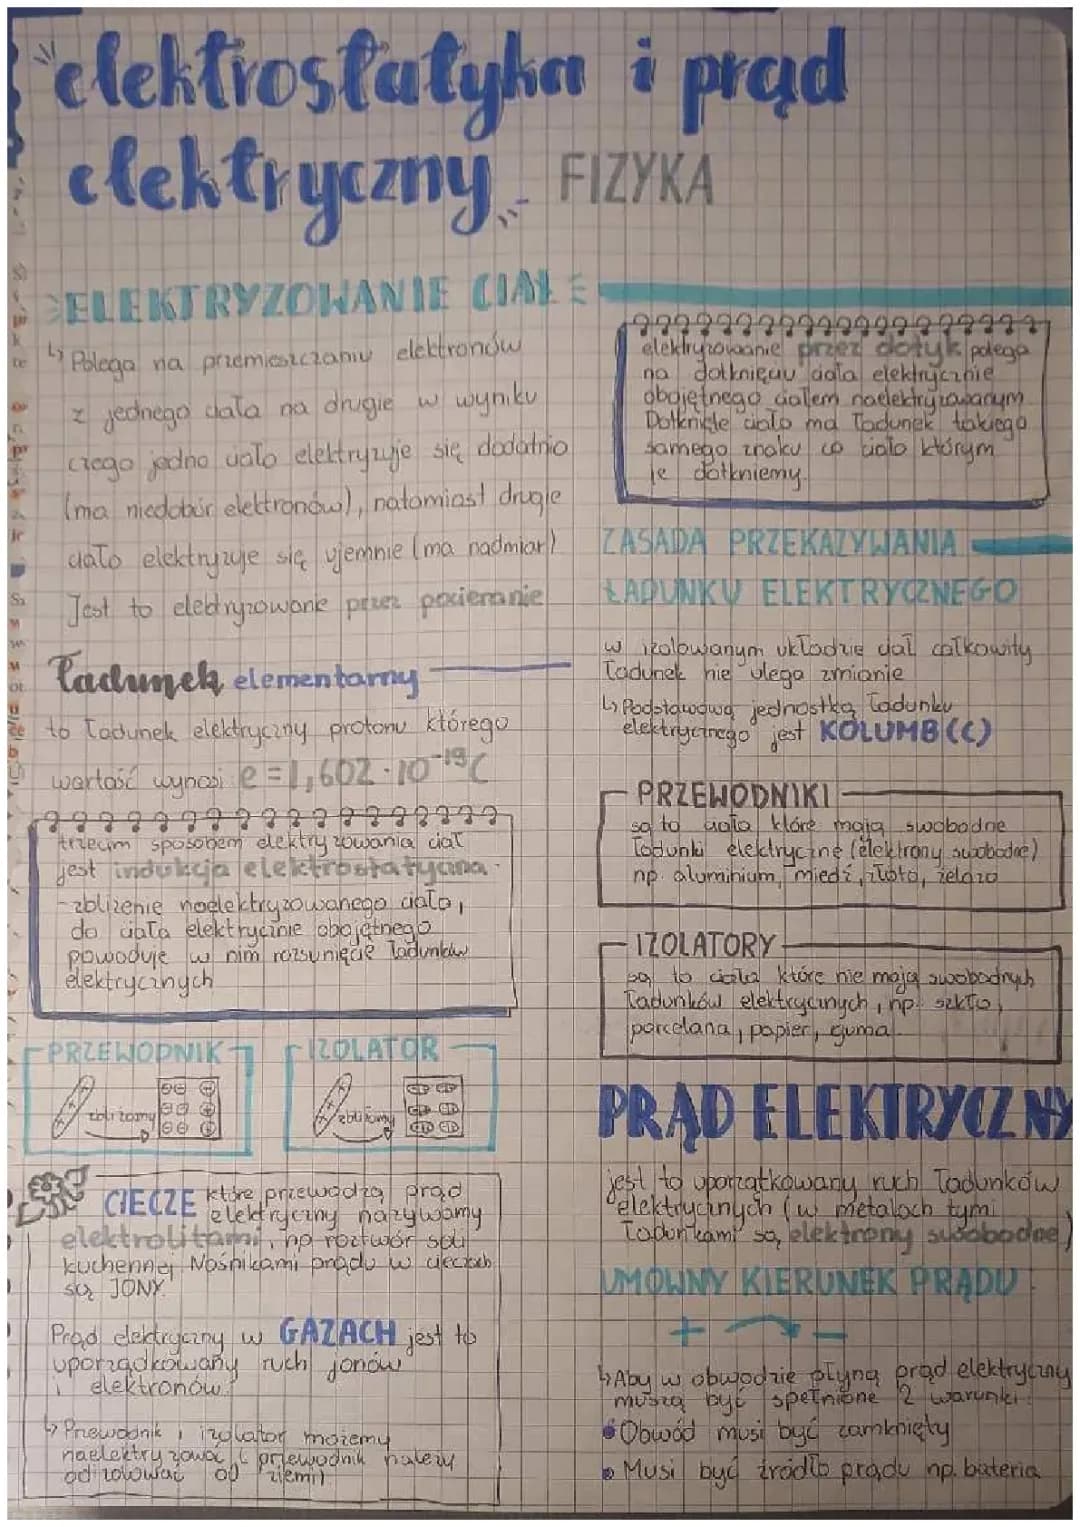 elektrostatyka i prąd
elektryczny FIZYKA
ELEKTRYZOWANIE CIAŁ
↳ Polega na przemieszczaniu elektronów
z jednego ciała na drugie w wyniku
czego jedno ciało elektryzuje się dodatnio
(ma niedobór elektronów), natomiast drugie
ciało elektryzuje się ujemnie (ma nadmiar)
Jest to elektryzowanie przez pocieranie
Ładunek elementarny
to ładunek elektryczny protonu którego
wartość wynosi e = 1,602 · 10⁻¹⁹ C
trzecim sposobem elektryzowania ciał
jest indukcja elektrostatyczna
- zbliżenie naelektryzowanego ciała,
do ciała elektrycznie obojętnego
powoduje w nim rozsunięcie ładunków
elektrycznych
PRZEWODNIK
zbliżamy
IZOLATOR
zbliżamy
CIECZE które przewodzą prąd
elektryczny nazywamy
elektrolitami, np roztwór soli
kuchennej Nośnikami prądu w cieczach
są JONY.
Prąd elektryczny w GAZACH jest to
uporządkowany ruch jonów
i elektronów.
↳ Przewodnik i izolator możemy
naelektryzować (przewodnik należy
odizolować od ziemi)
elektryzowanie przez dotyk polega
na dotknięciu ciała elektrycznie
obojętnego ciałem naelektryzowanym
Dotknięte ciało ma ładunek takiego
samego znaku co ciało którym
je dotkniemy.
ZASADA PRZEKAZYWANIA
ŁADUNKU ELEKTRYCZNEGO
w izolowanym układzie ciał całkowity
ładunek nie ulega zmianie
↳ Podstawową jednostką ładunku
elektrycznego jest KOLUMB (C)
PRZEWODNIKI
są to ciała które mają swobodne
ładunki elektryczne (elektrony swobodne)
np. aluminium, miedź, złoto, żelazo
IZOLATORY
są to ciała które nie mają swobodnych
ładunków elektrycznych, np. szkło,
porcelana, papier, guma.
PRĄD ELEKTRYCZNY
jest to uporządkowany ruch ładunków
elektrycznych (w metalach tymi
ładunkami są elektrony swobodne)
UMOWNY KIERUNEK PRĄDU
+ → -
↳ Aby w obwodzie płyną prąd elektryczny
muszą być spełnione 2 warunki:
• Obwód musi być zamknięty
• Musi być źródło prądu np. bateria